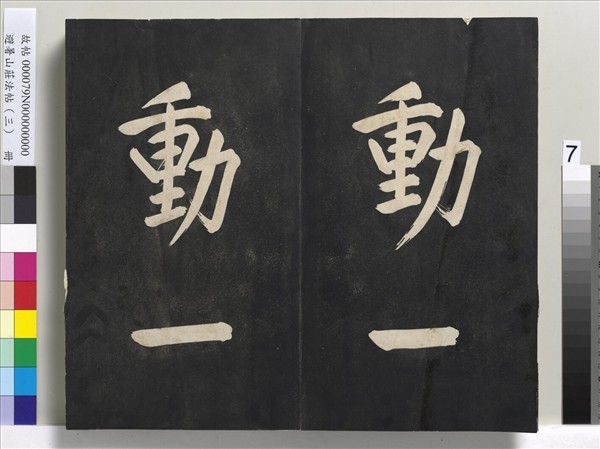 動一
動一
故帖 000079N000000000
避暑山莊法帖(三) 冊
7